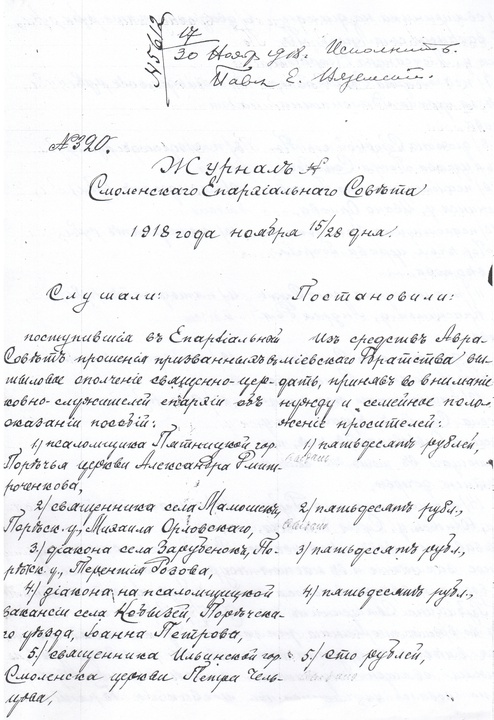 №5612
17
30 Нояб 1918. Исполнить.
№320.
Журналъ №
Смоленскаго Епархіальнаго Совѣта
1918 года ноября 15/28 дня.
Слушали:
поступившія въ Епархіальный
Совѣтъ прошенія призванныхъ въ
тыловое ополченіе священно-цер-
ковно-служителей епархіи объ
оказаніи пособій:
1) псаломщика Пятницкой гор.
Порѣчья церкви Александра
роченкова,
2) священника села
Порѣч. у., Михаила Орловскаго,
3) діакона села Зарубенокъ, По-
рѣч. у., Терентія Розова,
4) діакона на псаломщицкой
вакансіи села Порѣчска-
го уѣзда, Іоанна Петрова,
5) священника Ильинской гор.
Смоленска церкви Петра Чель-
цова,
Постановили:
Изъ средствъ Авра-
міевскаго Братства вы-
дать, принявъ во вниманіе
нужду и семейное поло-
женіе просителей:
1) пятьдесятъ рублей,
2) пятьдесятъ рубл.,
3) пятьдесятъ рубл.,
4) пятьдесятъ рубл.,
5) сто рублей,